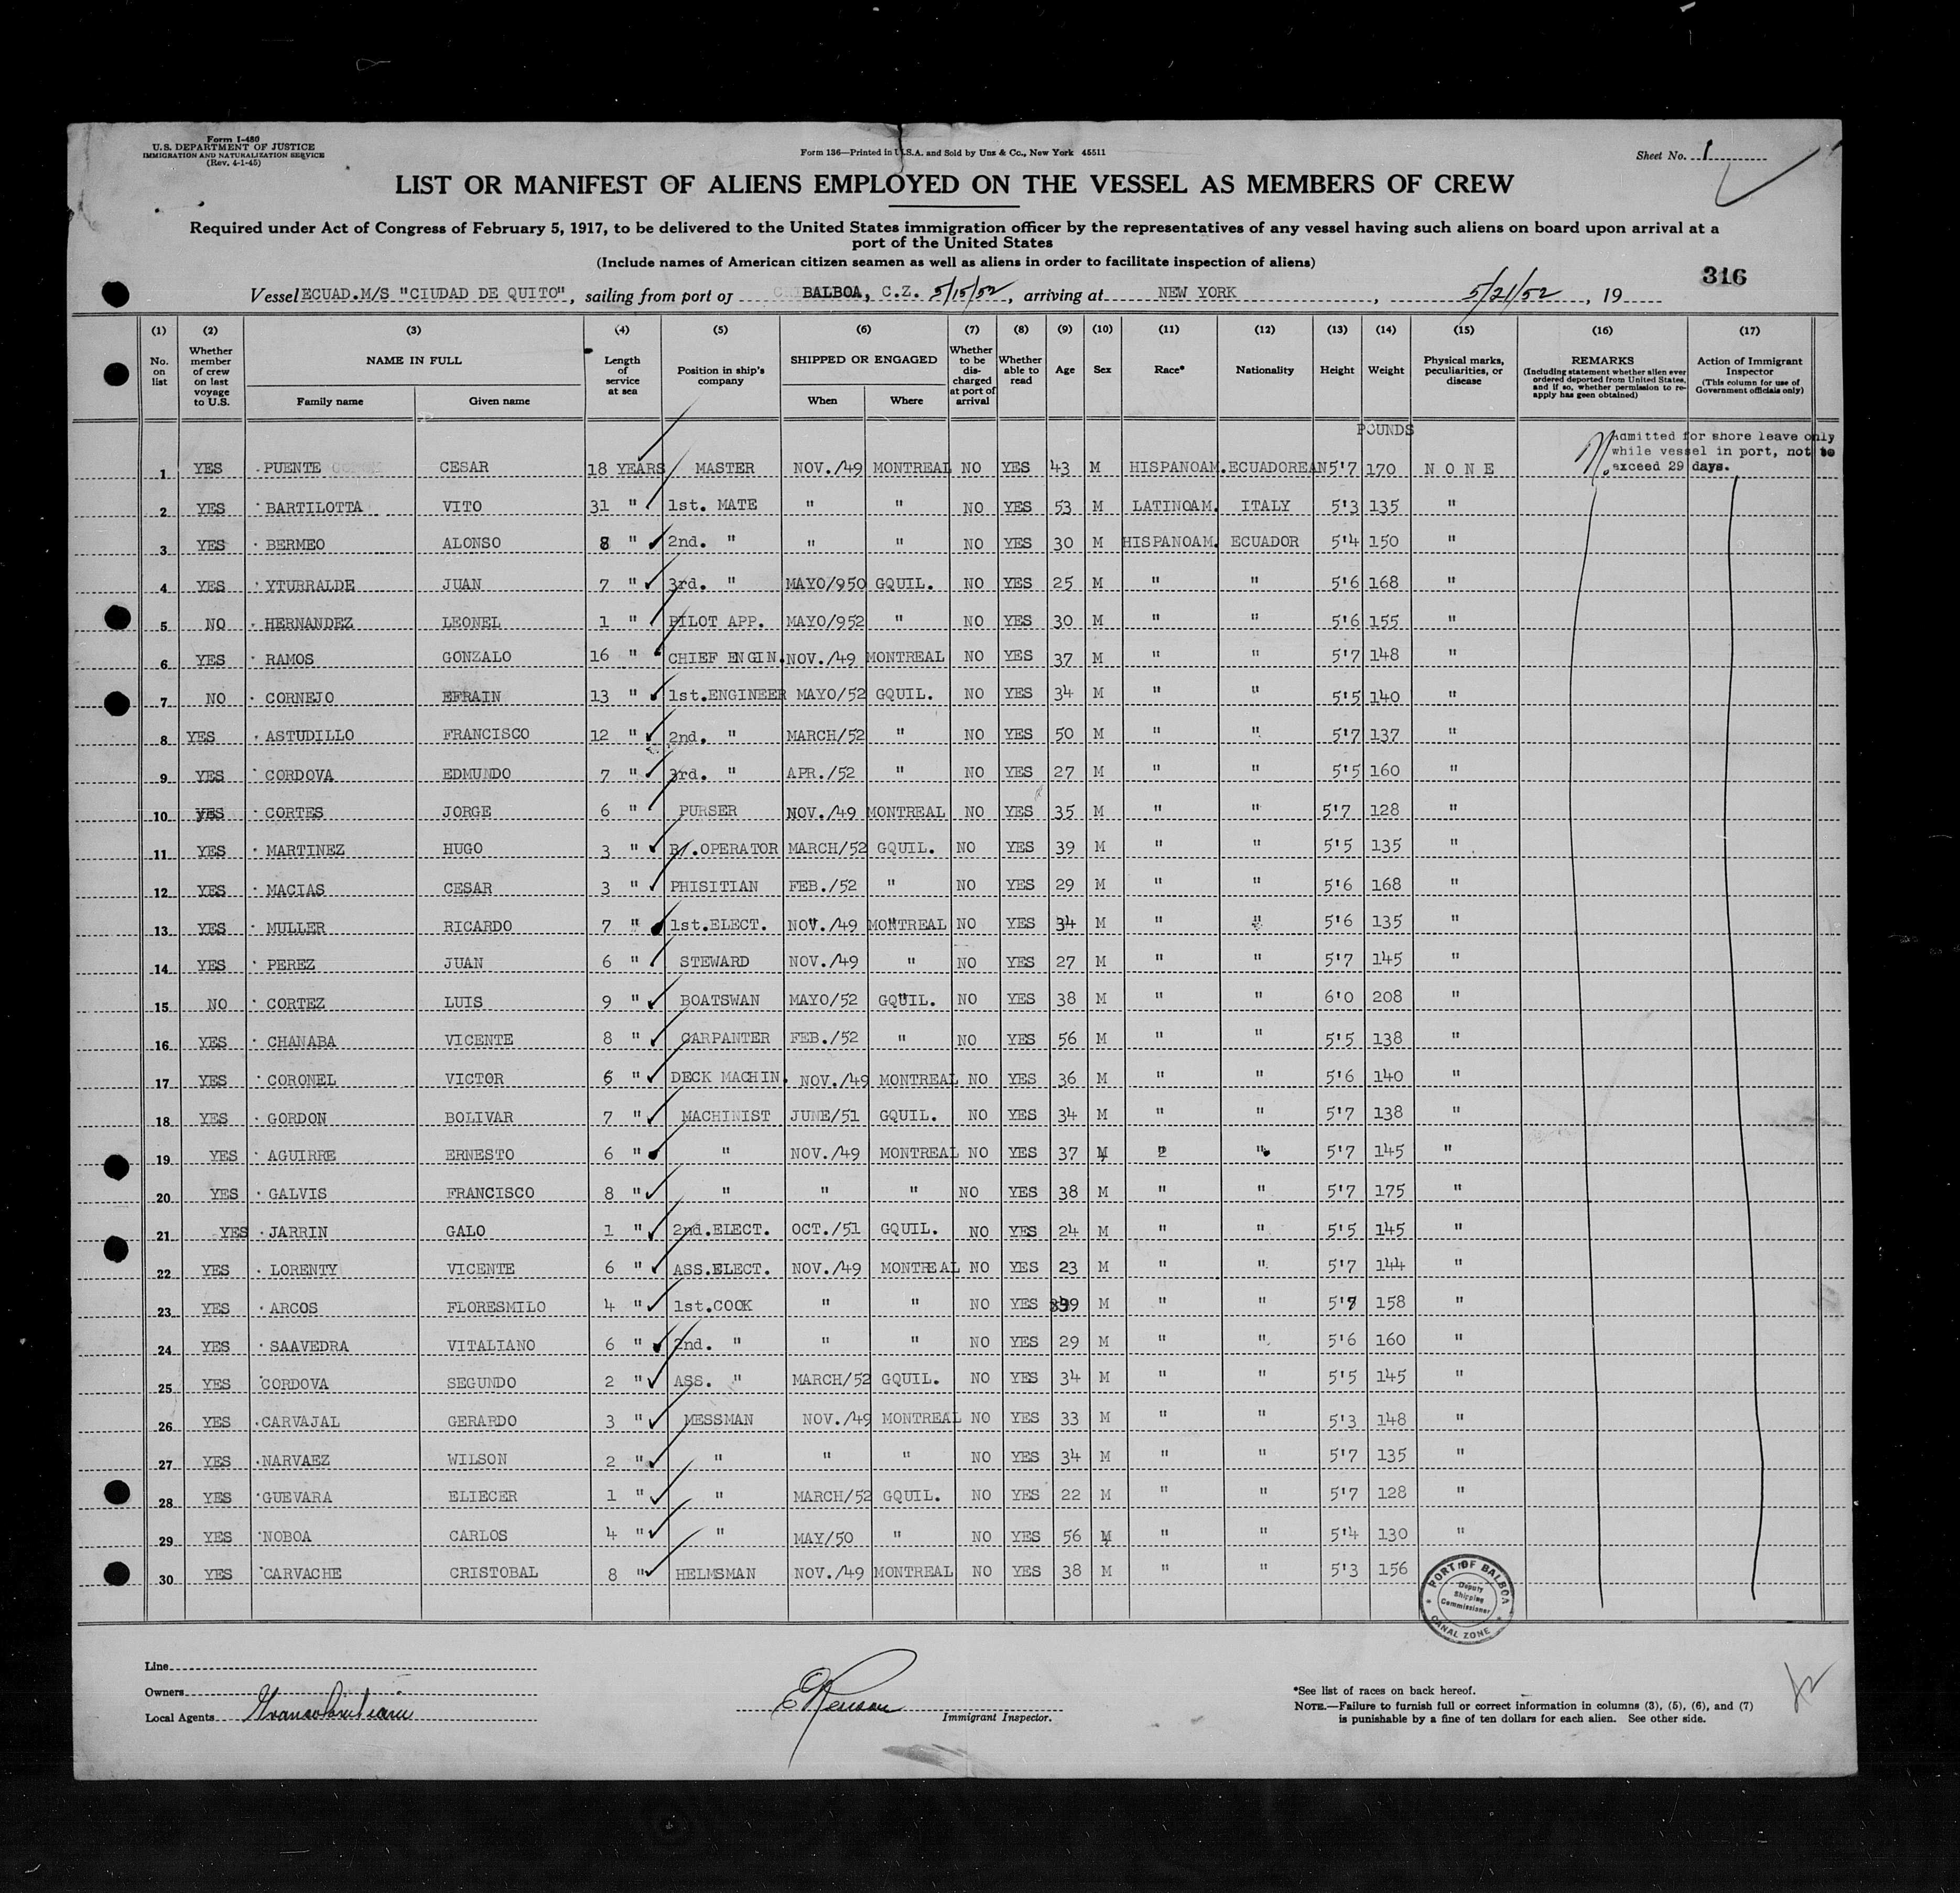 Form I-480
U.S. DEPARTMENT OF JUSTICE
IMMIGRATION AND NATURALIZATION SERVICE
(Rev. 4-1-45)
Form 136—Printed in U.S.A. and Sold by Unz & Co., New York 45511
Sheet No. 1
LIST OR MANIFEST OF ALIENS EMPLOYED ON THE VESSEL AS MEMBERS OF CREW
Required under Act of Congress of February 5, 1917, to be delivered to the United States immigration officer by the representatives of any vessel having such aliens on board upon arrival at a
port of the United States
(Include names of American citizen seamen as well as aliens in order to facilitate inspection of aliens)
316
Vessel ECUAD.M/S "CIUDAD DE QUITO", sailing from port of BALBOA, C.Z. 5/15/52, arriving at NEW YORK, 5/21/52, 19
(1) (2) (3) (4) (5) (6) (7) (8) (9) (10) (11) (12) (13) (14) (15) (16) (17)
No. on list
Whether member of crew on last voyage to U.S.
NAME IN FULL
Family name
Given name
Length of service at sea
Position in ship's company
SHIPPED OR ENGAGED
When
Where
Whether to be discharged at port of arrival
Whether able to read
Age
Sex
Race*
Nationality
Height
Weight
Physical marks, peculiarities, or disease
REMARKS
(Including statement whether alien ever ordered deported from United States, and if so, whether permission to reapply has geen obtained)
Action of Immigrant Inspector
(This column for use of Government officials only)
POUNDS
Admitted for shore leave only
while vessel in port, not to
exceed 29 days.
1 YES PUENTE CESAR 18 YEARS MASTER NOV./49 MONTREAL NO YES 43 M HISPANOAM. ECUADOREAN 5'7 170 N O N E
2 YES BARTILOTTA VITO 31 " 1st. MATE " " NO YES 53 M LATINOAM. ITALY 5'3 135 "
3 YES BERMEO ALONSO 8 " 2nd. " " " NO YES 30 M HISPANOAM. ECUADOR 5'4 150 "
4 YES YTURRALDE JUAN 7 " 3rd. " MAYO/950 GQUIL. NO YES 25 M " " 5'6 168 "
5 NO HERNANDEZ LEONEL 1 " PILOT APP. MAYO/952 " NO YES 30 M " " 5'6 155 "
6 YES RAMOS GONZALO 16 " CHIEF ENGIN. NOV./49 MONTREAL NO YES 37 M " " 5'7 148 "
7 NO CORNEJO EFRAIN 13 " 1st.ENGINEER MAYO/52 GQUIL. NO YES 34 M " " 5'5 140 "
8 YES ASTUDILLO FRANCISCO 12 " 2nd. " MARCH/52 " NO YES 50 M " " 5'7 137 "
9 YES CORDOVA EDMUNDO 7 " 3rd. " APR./52 " NO YES 27 M " " 5'5 160 "
10 YES CORTES JORGE 6 " PURSER NOV./49 MONTREAL NO YES 35 M " " 5'7 128 "
11 YES MARTINEZ HUGO 3 " R/.OPERATOR MARCH/52 GQUIL. NO YES 39 M " " 5'5 135 "
12 YES MACIAS CESAR 3 " PHISITIAN FEB./52 " NO YES 29 M " " 5'6 168 "
13 YES MULLER RICARDO 7 " 1st.ELECT. NOV./49 MONTREAL NO YES 34 M " " 5'6 135 "
14 YES PEREZ JUAN 6 " STEWARD NOV./49 " NO YES 27 M " " 5'7 145 "
15 NO CORTEZ LUIS 9 " BOATSWAN MAYO/52 GQUIL. NO YES 38 M " " 6'0 208 "
16 YES CHANABA VICENTE 8 " CARPANTER FEB./52 " NO YES 56 M " " 5'5 138 "
17 YES CORONEL VICTOR 6 " DECK MACHIN. NOV./49 MONTREAL NO YES 36 M " " 5'6 140 "
18 YES GORDON BOLIVAR 7 " MACHINIST JUNE/51 GQUIL. NO YES 34 M " " 5'7 138 "
19 YES AGUIRRE ERNESTO 6 " " NOV./49 MONTREAL NO YES 37 M " " 5'7 145 "
20 YES GALVIS FRANCISCO 8 " " " " NO YES 38 M " " 5'7 175 "
21 YES JARRIN GALO 1 " 2nd.ELECT. OCT./51 GQUIL. NO YES 24 M " " 5'5 145 "
22 YES LORENTY VICENTE 6 " ASS.ELECT. NOV./49 MONTREAL NO YES 23 M " " 5'7 144 "
23 YES ARCOS FLORESMILO 4 " 1st.COOK " " NO YES 39 M " " 158 "
24 YES SAAVEDRA VITALIANO 6 " 2nd. " " " NO YES 29 M " " 5'6 160 "
25 YES CORDOVA SEGUNDO 2 " ASS. " MARCH/52 GQUIL. NO YES 34 M " " 5'5 145 "
26 YES CARVAJAL GERARDO 3 " MESSMAN NOV./49 MONTREAL NO YES 33 M " " 5'3 148 "
27 YES NARVAEZ WILSON 2 " " " " NO YES 34 M " " 5'7 135 "
28 YES GUEVARA ELIECER 1 " " MARCH/52 GQUIL. NO YES 22 M " " 5'7 128 "
29 YES NOBOA CARLOS 4 " " MAY/50 " NO YES 56 M " " 5'4 130 "
30 YES CARVACHE CRISTOBAL 8 " HELMSMAN NOV./49 MONTREAL NO YES 38 M " " 5'3 156 "
PORT OF BALBOA
Deputy
Shipping
Commissioner
CANAL ZONE
Line
Owners
Local Agents
Immigrant Inspector.
*See list of races on back hereof.
NOTE.—Failure to furnish full or correct information in columns (3), (5), (6), and (7)
is punishable by a fine of ten dollars for each alien. See other side.